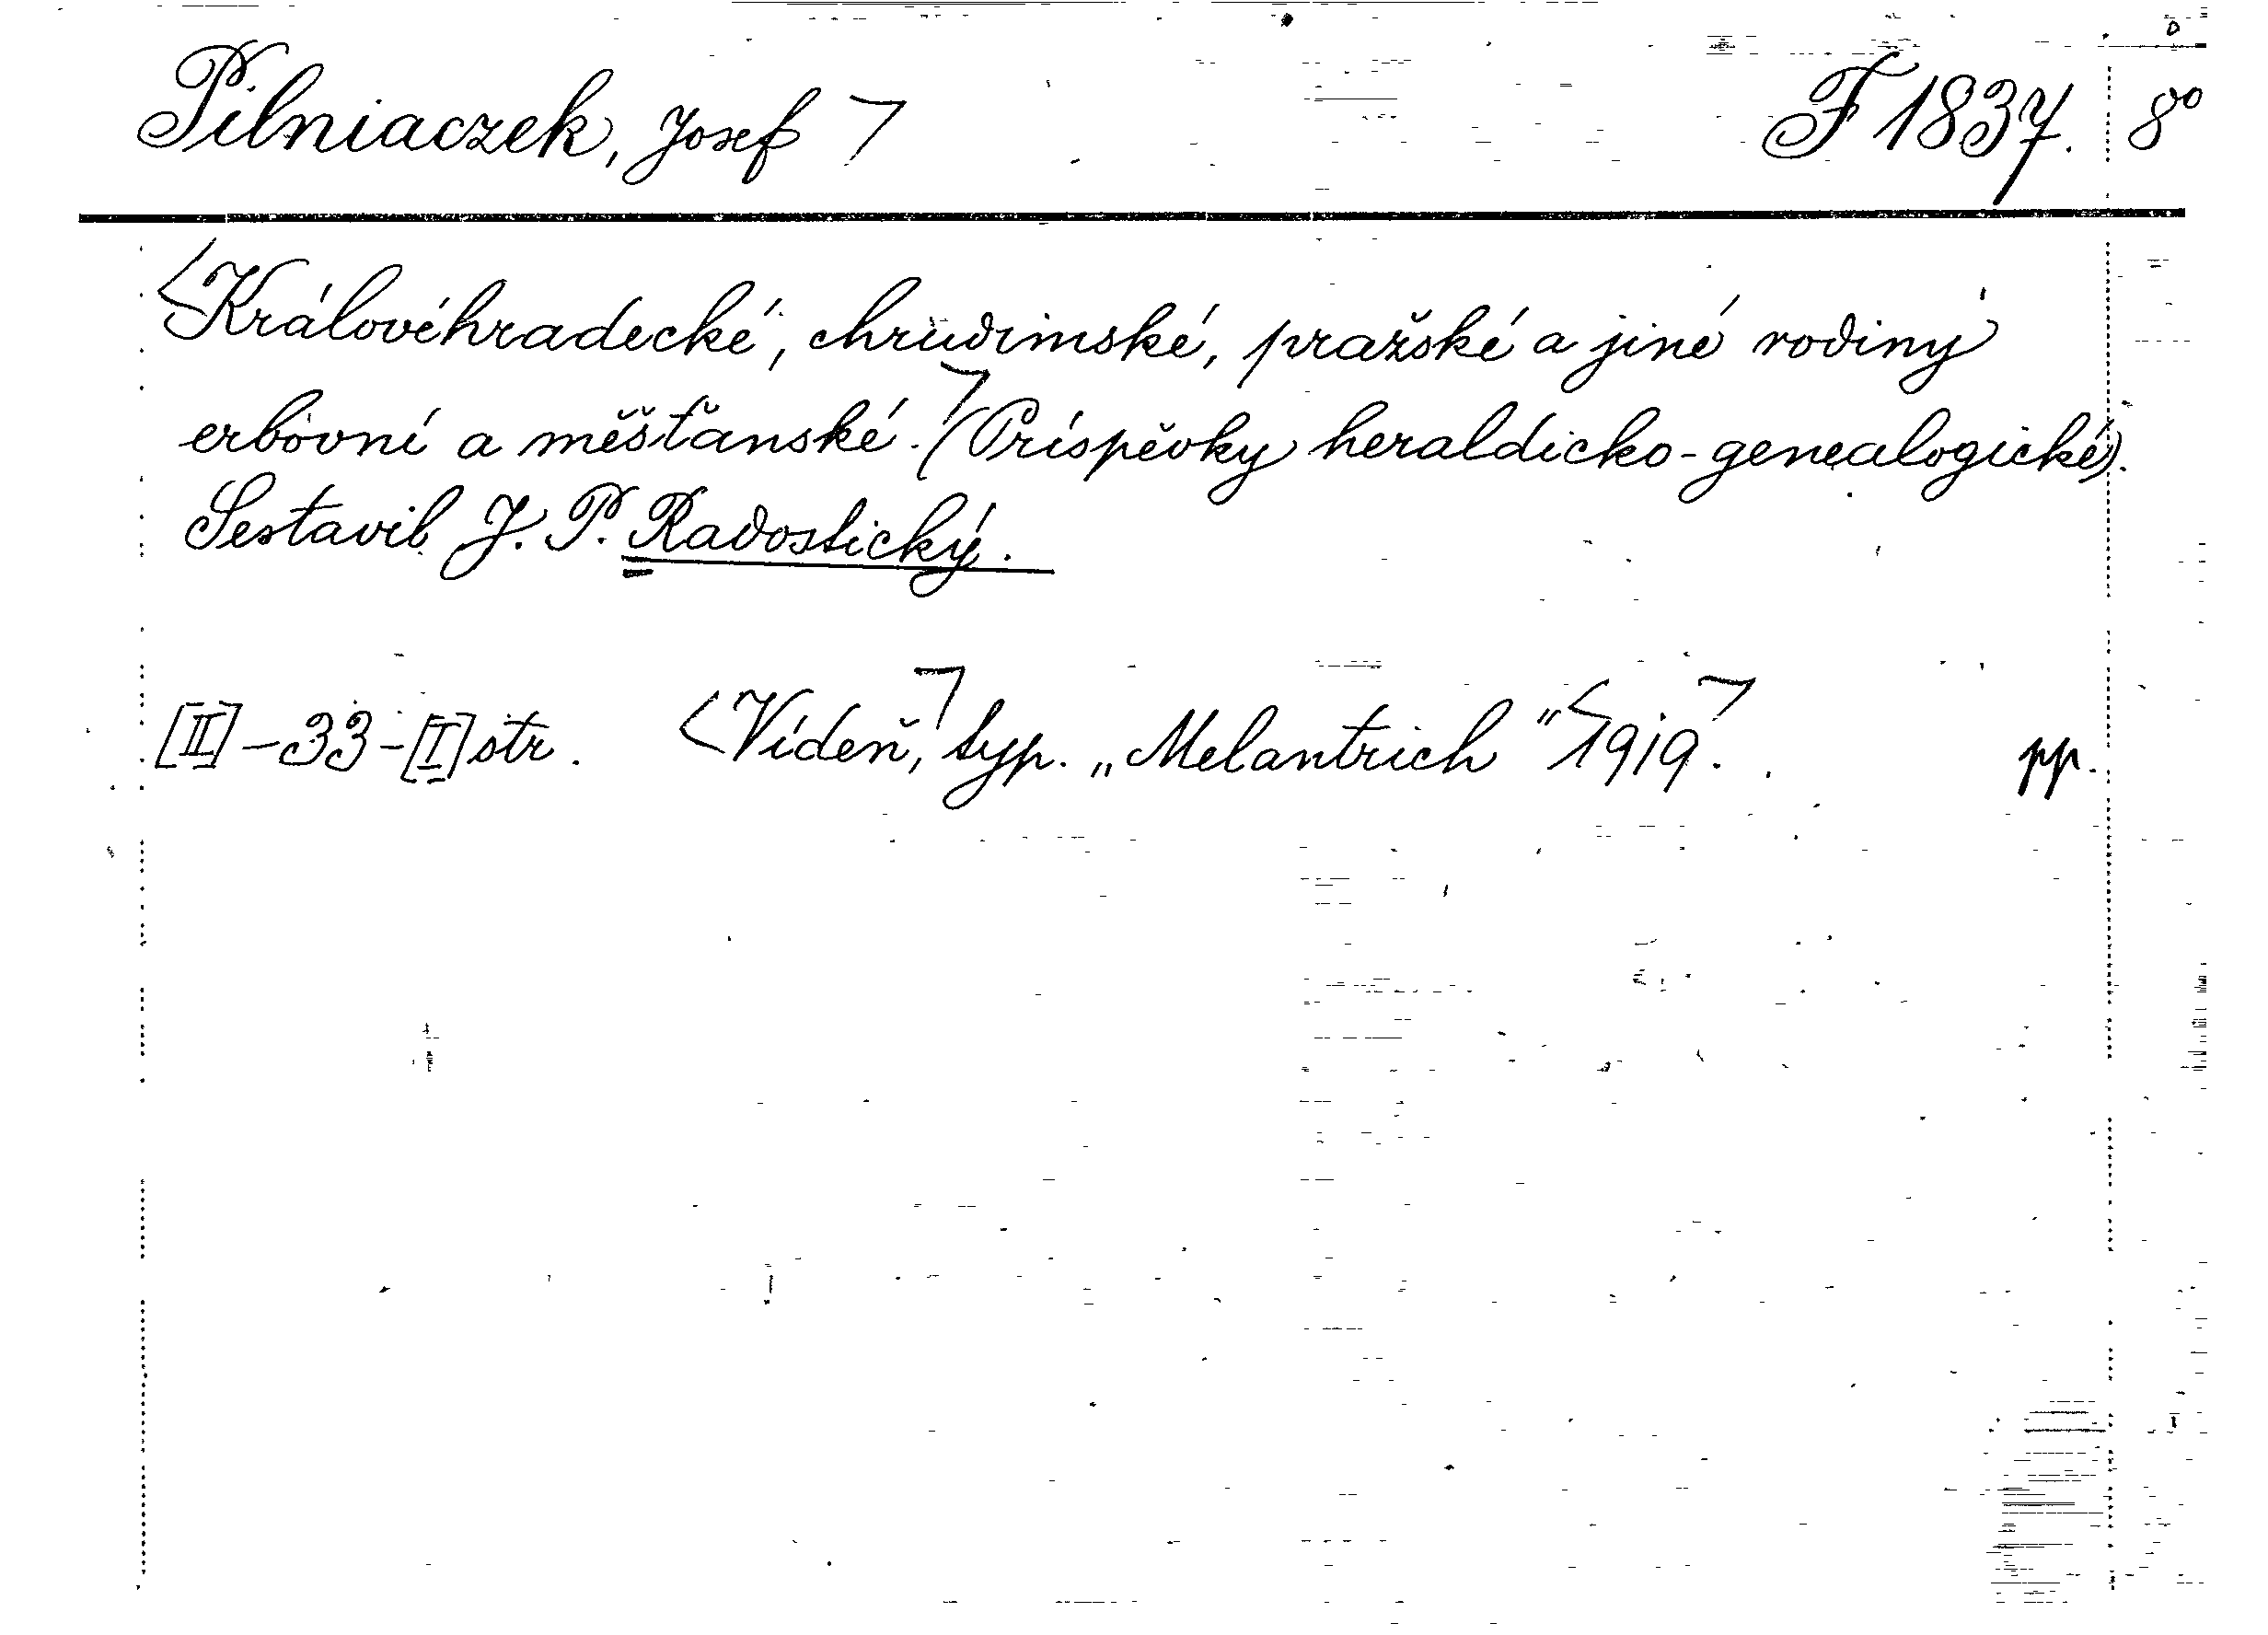 Pilniaczek, Josef F 1837. 8°
Královéhradecké, chrudimské, pražské a jiné rodiny
erbovní a měšťanské. (Príspěvky heraldicko-genealogické).
Sestavil J. P. Radostický.
[II]-33-[I] str. Vídeň, typ. „Melantrich" 1919. pp.